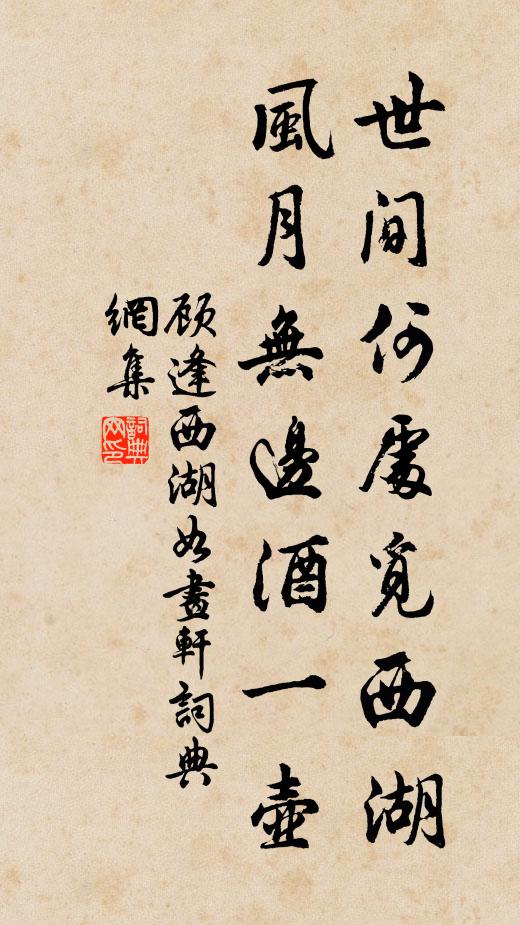 世間何處覓西湖
風月無邊酒一壺
顾逢西湖如畫軒詞典
網集
詞典网印